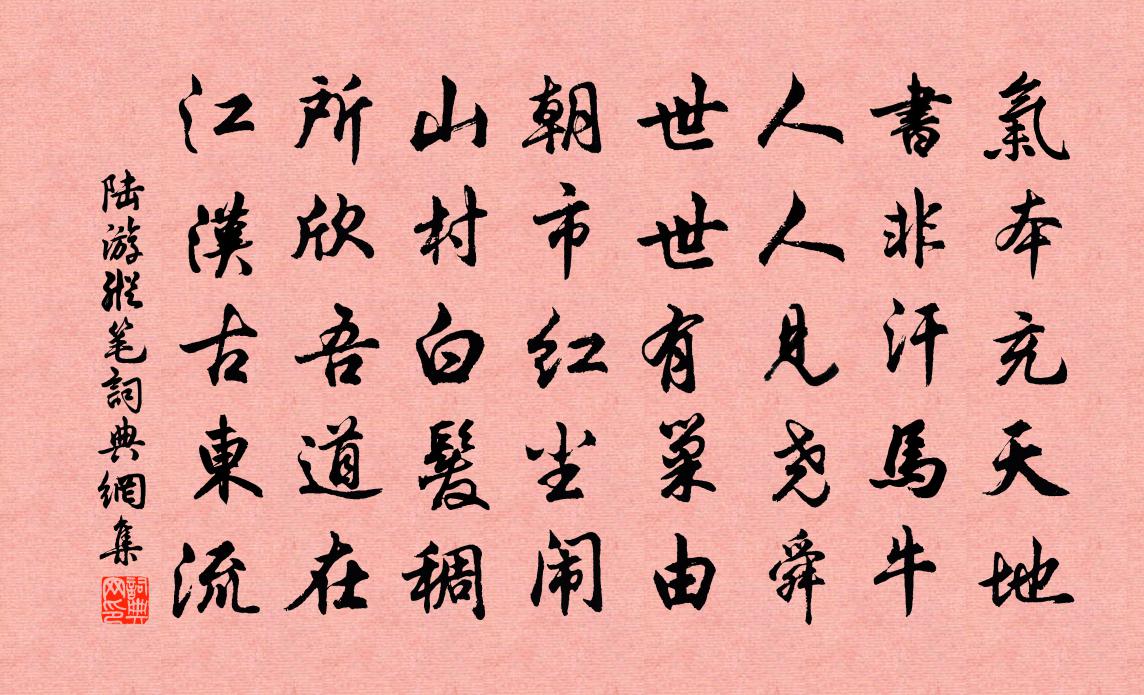 氣本充天地
書非汗馬牛
人人見尧舜
世世有巢由
朝市红尘闹
山村白髮稠
所欣吾道在
江漢古東流
陆游縱笔詞典網集
詞典网印